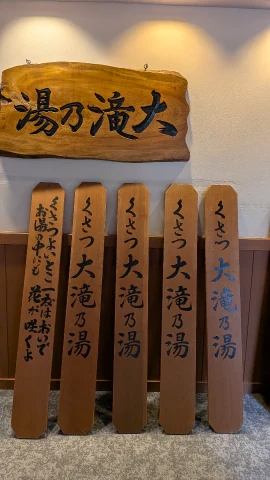 大滝乃湯
くさつ大滝乃湯
くさつ大滝乃湯
くさつ大滝乃湯
くさつ大滝乃湯
くさつよいとこ一度はおいで
お湯の中にも花が咲くよ